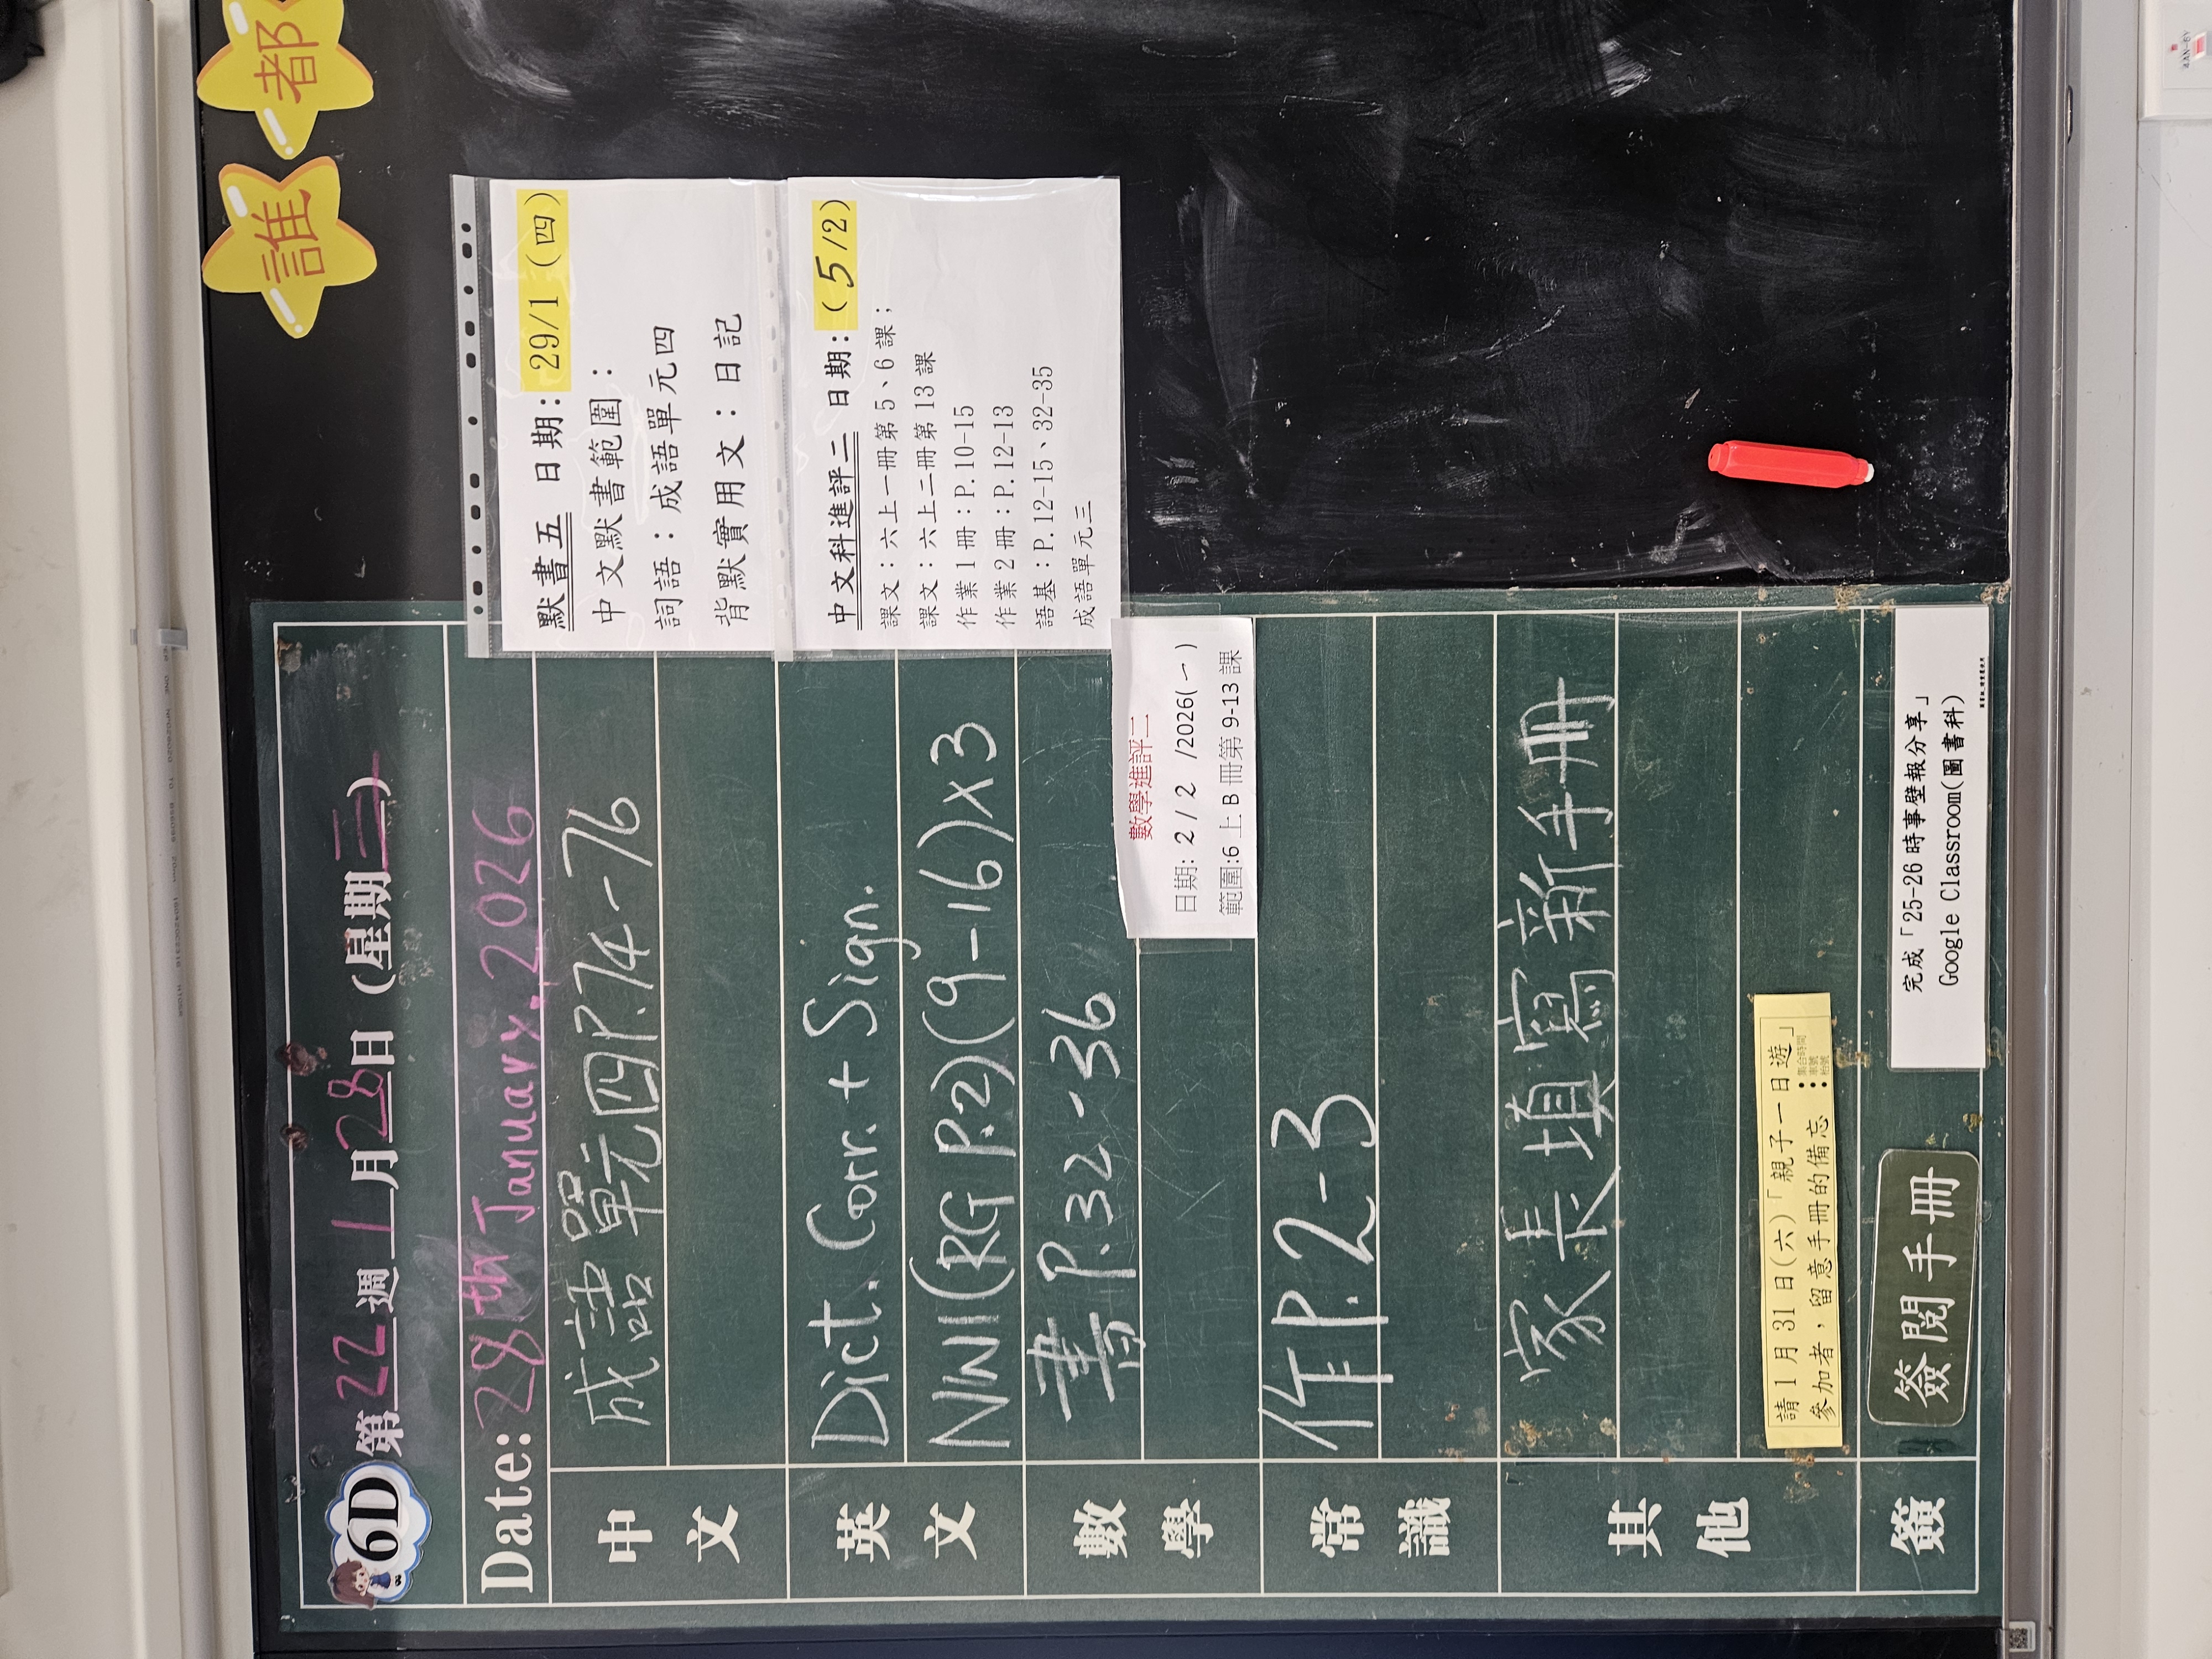 誰都
6D 第22週 1月28日(星期三)
Date: 28th January, 2026
中文
成語單元四P.74-76
英文
Dict. Corr. + Sign.
NWI(RG P.2)(9-16)x3
數學
書P.32-36
常識
作P.2-3
其他
家長填寫新手冊
請1月31日(六)「親子一日遊」
參加者,留意手冊的備忘
•集合時間
•車號
•枱號
簽
簽閱手冊
默書五 日期: 29/1 (四)
中文默書範圍:
詞語:成語單元四
背默實用文:日記
中文科進評二 日期:(5/2)
課文:六上一冊第5、6課;
課文:六上二冊第13課
作業1冊:P.10-15
作業2冊:P.12-13
語基:P.12-15、32-35
成語單元三
數學進評二
日期: 2 / 2 /2026(一)
範圍:6上B冊第9-13課
完成「25-26時事壁報分享」
Google Classroom(圖書科)